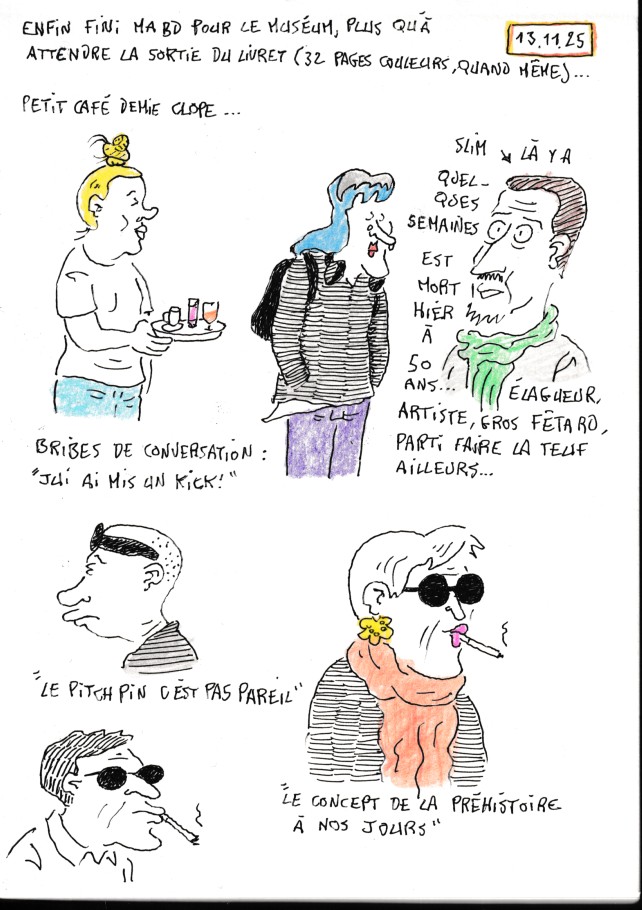 ENFIN FINI MA BD POUR LE MUSÉUM, PLUS QU'À
13.11.25
ATTENDRE LA SORTIE DU LIVRET (32 PAGES COULEURS, QUAND MÊME)...
PETIT CAFÉ DEMIE CLOPE...
SLIM LÀ Y A
QUEL-
QUES
SEMAINES
EST
MORT
HIER
À
50
ANS...
ÉLAGUEUR,
ARTISTE, GROS FÊTARD,
PARTI FAIRE LA TEUF
AILLEURS...
BRIBES DE CONVERSATION :
"JUI AI MIS UN KICK!"
"LE PITCHPIN C'EST PAS PAREIL"
"LE CONCEPT DE LA PRÉHISTOIRE
À NOS JOURS"